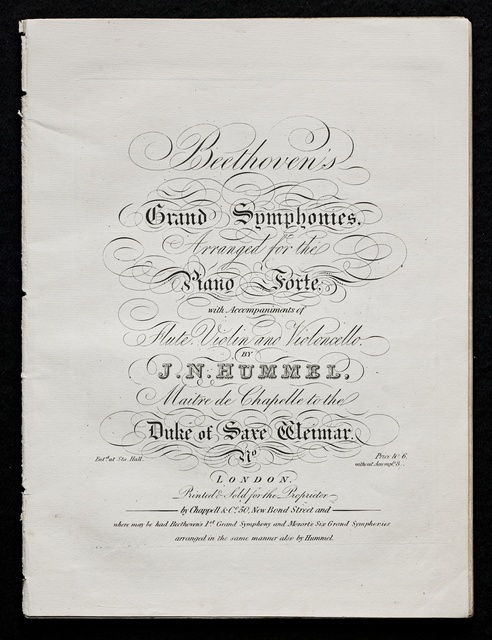 Beethoven's
Grand Symphonies,
Arranged for the
Piano Forte,
with Accompaniments of
Flute, Violin and Violoncello,
BY
J. N. HUMMEL,
Maitre de Chapelle to the
Duke of Saxe Weimar.
No
Ent.d at Sta. Hall.
Price
6
without Accomp.ts
LONDON.
Printed & Sold for the Proprietor
by Chappell & Co. 50, New Bond Street and
where may be had Beethoven's 1st Grand Symphony and Mozarts Six Grand Symphonies
arranged in the same manner also by Hummel.